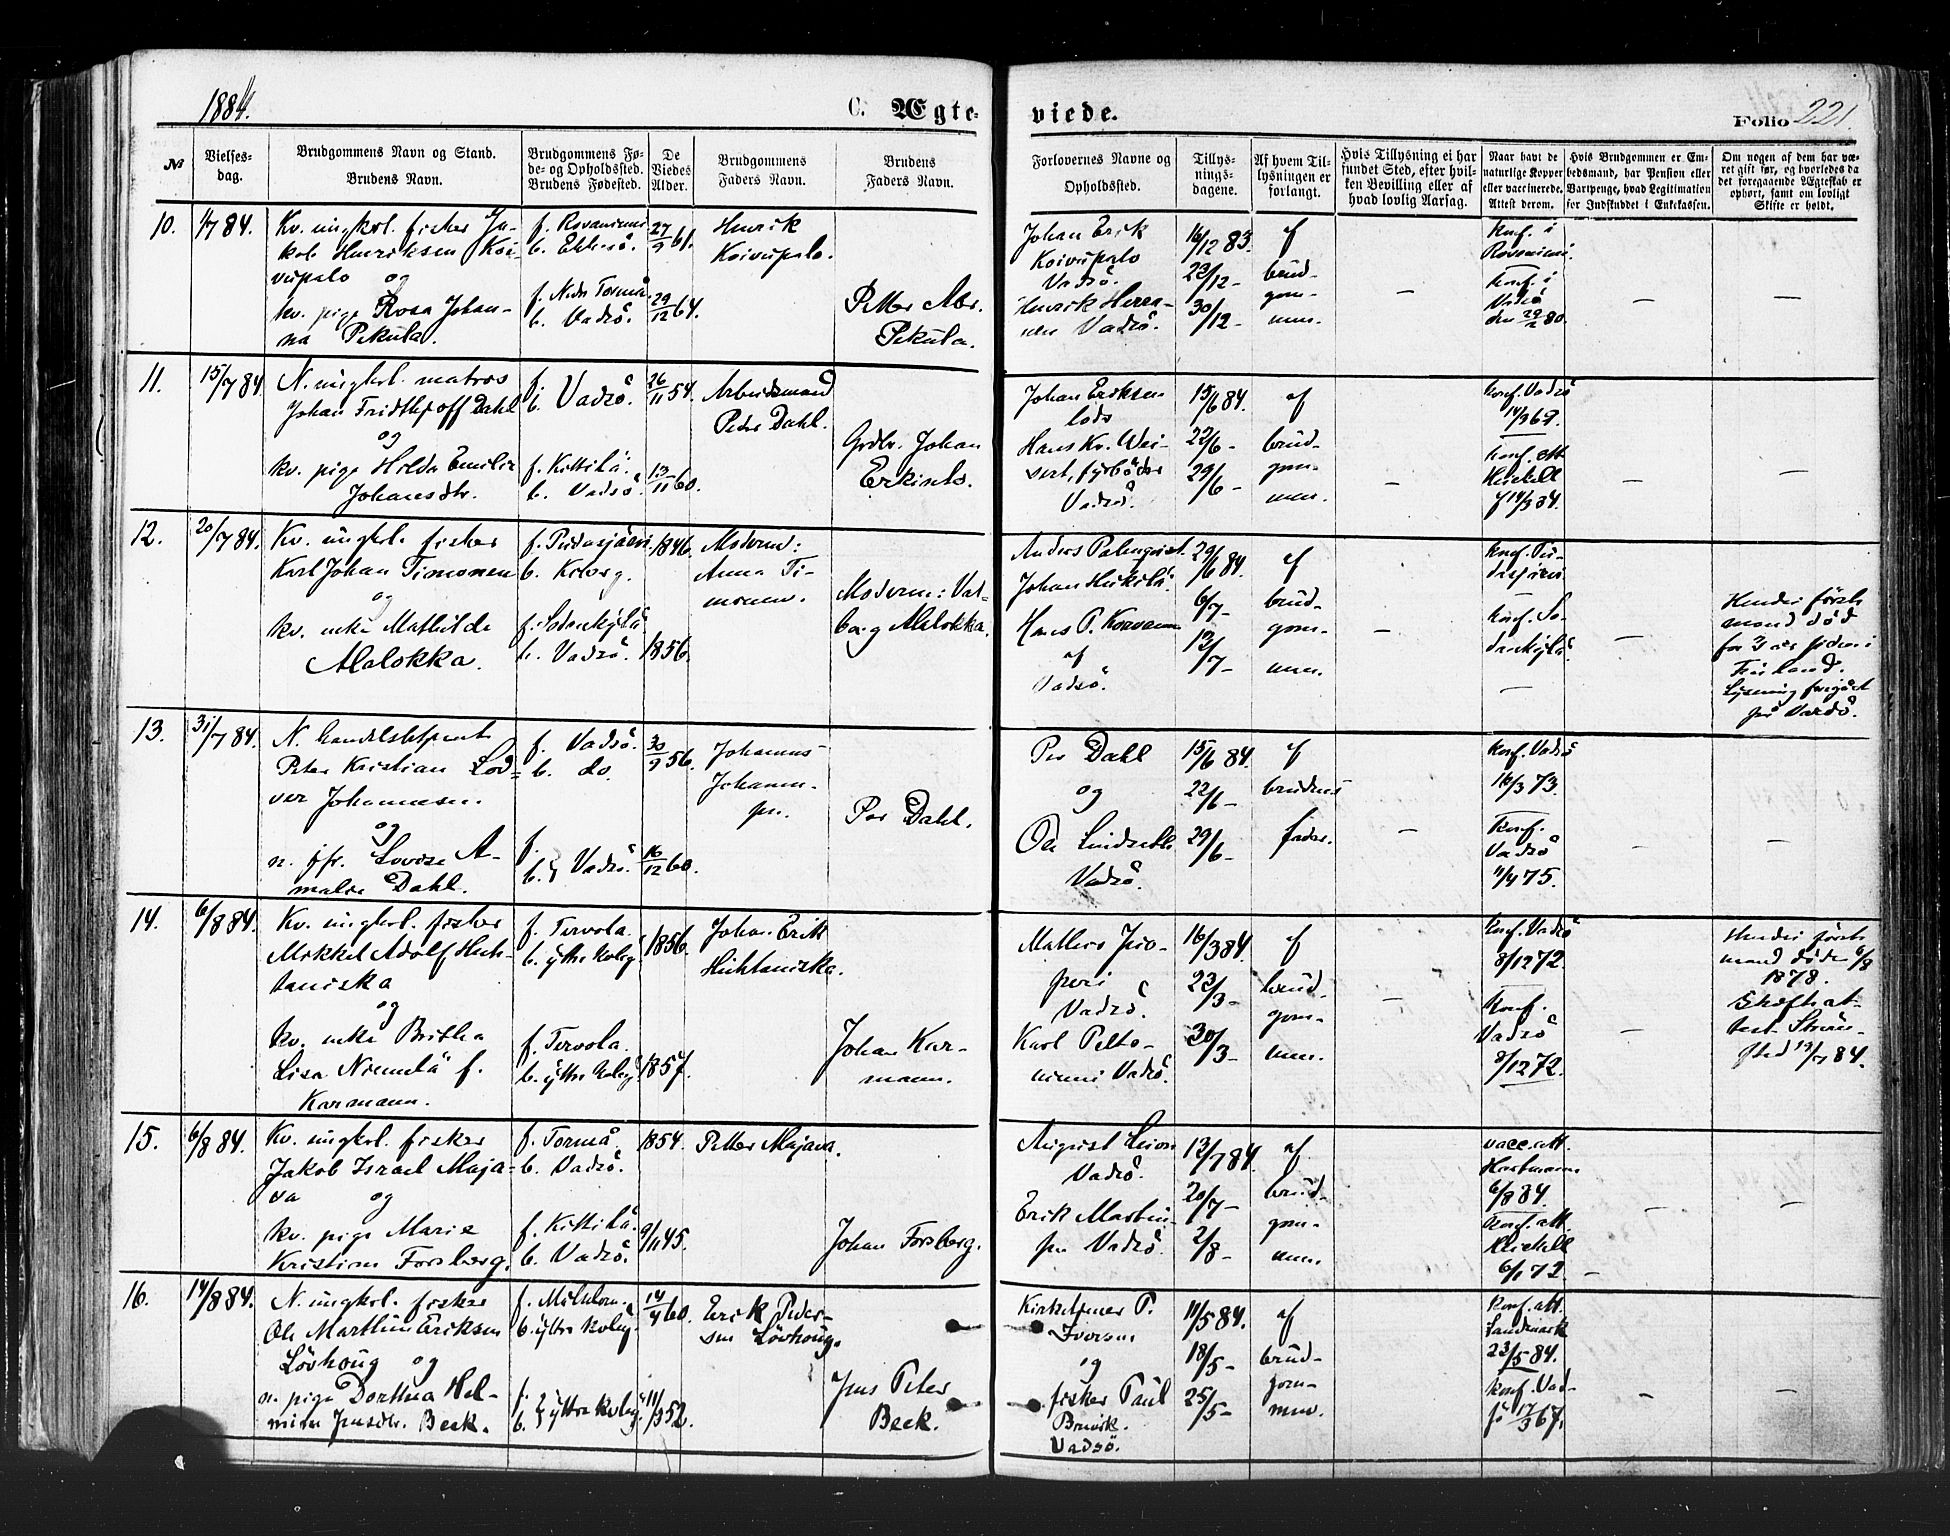 1884.
C. Ægte-
viede.
Folio 221.
№
Vielses-
dag.
Brudgommens Navn og Stand.
Brudens Navn.
Brudgommens Fø-
de- og Opholdssted.
Brudens Fødested.
De
Viedes
Alder.
Brudgommens
Faders Navn.
Brudens
Faders Navn.
Forlovernes Navne og
Opholdssted.
Tillys-
nings-
dagene.
Af hvem Til-
lysningen er
forlangt.
Hvis Tillysning ei har
fundet Sted, efter hvil-
ken Bevilling eller af
hvad lovlig Aarsag.
Naar havt de
naturlige Kopper
eller vaccinerede.
Attest derom.
Hvis Brudgommen er Em-
bedsmand, har Pension eller
Vartpenge, hvad Legitimation
for Indskuddet i Enkekassen.
Om nogen af dem har væ-
ret gift før, og hvorledes da
det foregaaende Ægteskab er
ophørt, samt om lovligt
Skifte er holdt.
10.
4/7 84.
Kv. ungkrl. fisker Ja-
kob Henriksen Koi-
vupalo
og
kv. pige Rosa Johan-
na Pekula.
f. Rovaniemi
b. Ekkerö.
f. Neder Torneå
b. Vadsö.
27/9 61.
29/12 64.
Henrik
Koivupalo.
Petter Abr.
Pekula.
Johan Erik
Koivupalo
Vadsö.
Henrik Herra-
nen Vadsö.
16/12 83.
23/12 -
30/12 -
af
brud-
gom-
men.
Konf. i
Rovaniemi.
Konf. i
Vadsö
den 29/2 80.
11.
15/7 84
N. ungkrl. matros
Johan Fridthjoff Dahl
og
kv. pige Hilda Emilie
Johansdtr.
f.
b. Vadsö.
f. Kittilä.
b. Vadsö.
26/11 54.
13/11 60.
Arbeidsmand
Peder Dahl.
Grdbr. Johan
Erkints.
Johan Eriksen
lods
Hans Kr. Wei-
sert, fyrböder
Vadsö.
15/6 84.
22/6 -
29/6 -
af
brud-
gom-
men.
Konf. Vadsö
14/3 69.
Konf. att
Heickell
14/3 84.
12.
20/7 84.
Kv. ungkrl. fisker
Karl Johan Timonen
og
kv. enke Mathilde
Alalokka.
f. Pudasjärvi
b. Kiberg.
f. Sodankylä
b. Vadsö.
1846.
1856.
Moderen:
Anna Ti-
monen.
Moderen: Val-
borg Alalokka.
Anders Palmqvist
Johan Heikilä
Hans P. Korvanen
af
Vadsö.
29/6 84.
6/7 -
13/7 -
af
brud-
gom-
men.
Konf. Pu-
dasjärvi
Konf. So-
dankylä.
Hendes förste
mand död
for 3 aar siden i
Finland.
Lysning foregået
på Vardö.
13.
31/7 84.
N. handelsbetjent
Peter Kristian Lod-
ver Johannesen.
og
n. jfr. Lovise A-
malie Dahl.
f. Vadsö.
b. do.
f.
b. Vadsö.
30/9 56.
16/12 60.
Johannes
Johannes-
sen.
Per Dahl.
Per Dahl
og
Ole Lindseth
Vadsö.
15/6 84.
22/6 -
29/6 -
af
brudens
fader.
Konf. Vadsö
16/3 73.
Konf.
Vadsö
11/4 75.
14.
6/8 84.
Kv. ungkrl. fisker
Mikkel Adolf Huh-
taniska
og
kv. enke Britha
Lisa Niemelä f.
Karmann.
f. Tervola.
b. ytre Kobg
f. Tervola.
b. ytre Kobg
1856.
1857.
Johan Erik
Huhtaniska.
Johan Kar-
mann.
Mathis Juo-
peri
Vadsö.
Karl Pelto-
niemi Vadsö.
16/3 84.
23/3 -
30/3 -
af
brud-
gom-
men.
Konf. Vadsö
8/12 72.
Konf.
Vadsö
8/12 72.
Hendes förste
mand döde 6/8
1878.
Skifteat-
test
13/7 84.
15.
6/8 84.
Kv. ungkrl. fisker
Jakob Israel Maja-
va og
kv. pige Marie
Kristine Forsberg.
f. Torneå.
b. Vadsö.
f. Kittilä.
b. Vadsö.
1854.
9/11 45.
Petter Majava.
Johan Forsberg.
August Leion
Vadsö.
Erik Martin-
sen Vadsö.
13/7 84.
20/7 -
2/8 -
af
brud-
gom-
men.
vacc. att.
Hartmann
6/8 84.
Konf. att.
Heickell
6/1 72.
16.
14/8 84.
N. ungkrl. fisker
Ole Marthin Eriksen
Lövhoug og
n. pige Dorthea Hel-
mine Jensdtr. Beck.
b. ytre Kobg.
f.
b. ytre Kobg.
14/4 60.
11/3 52.
Erik Peder-
sen Lövhoug.
Jens Peter
Beck.
Kirketjener P.
Iversen
og
fisker Paul
Brevik
Vadsö.
11/5 84.
18/5 -
25/5 -
af
brud-
gom-
men.
Konf. att.
Landmark
23/5 84.
Konf. Vad-
sö 17/3 67.